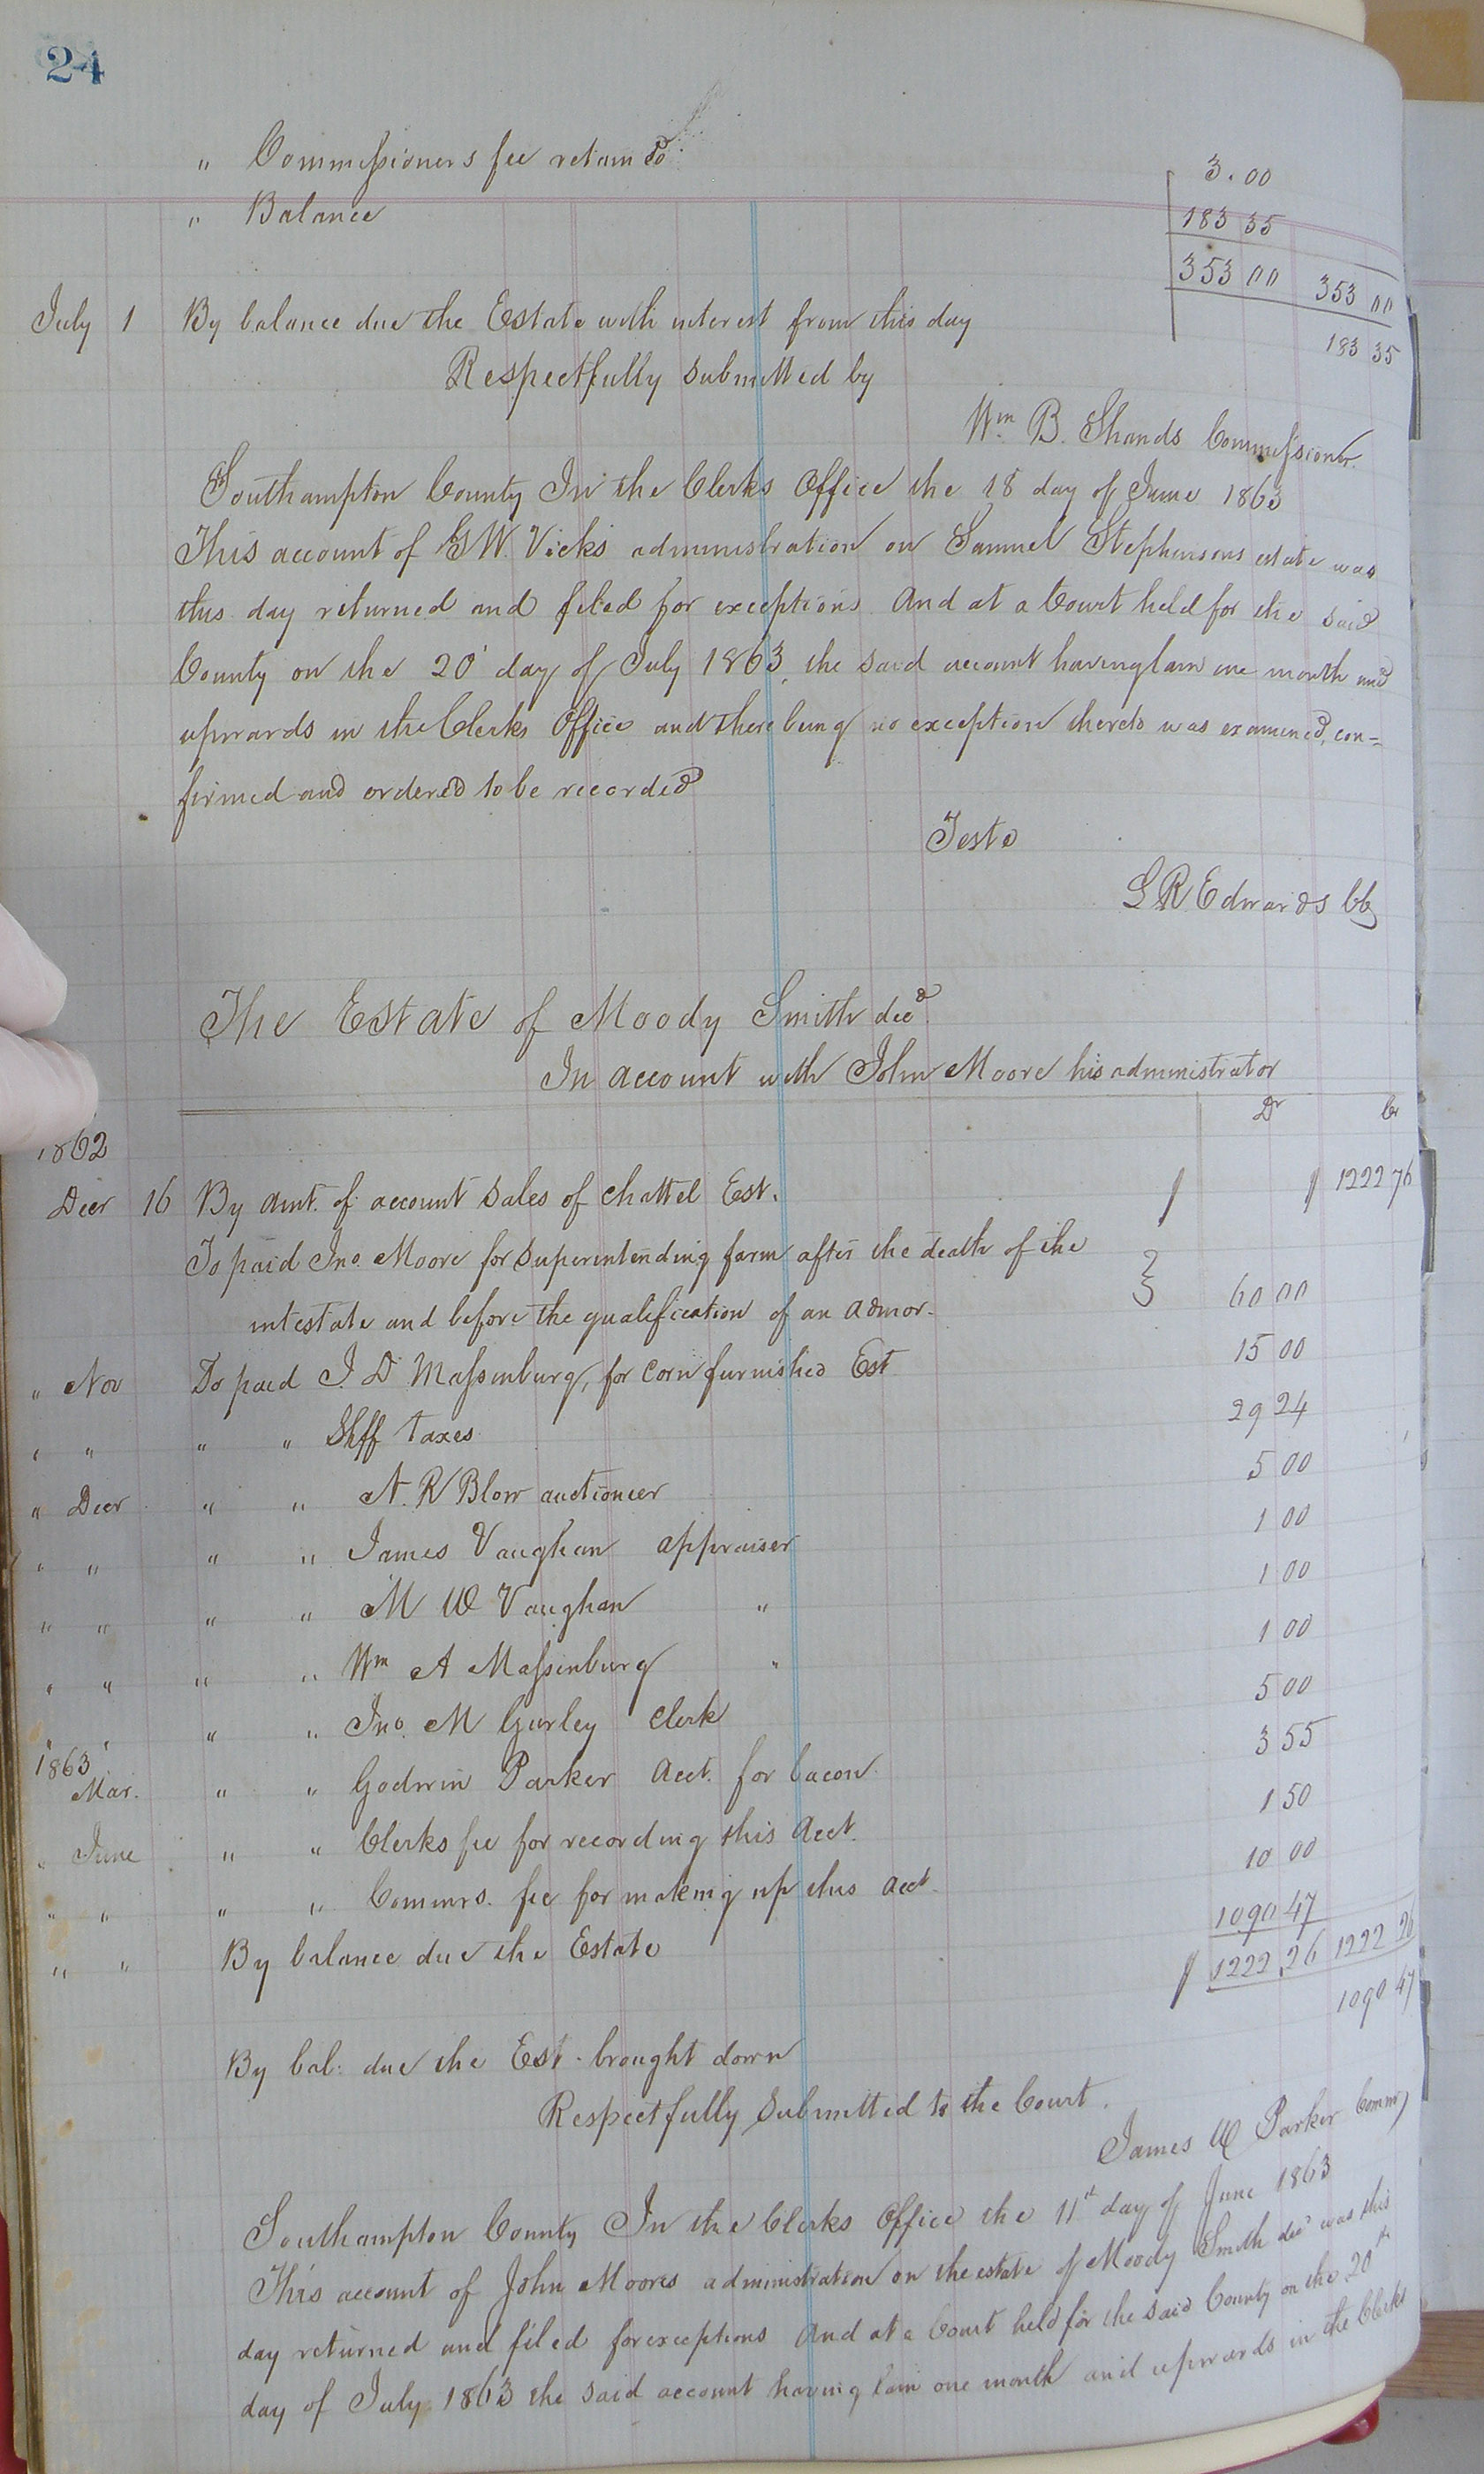 24
" Commissioners fee retaind 3.00
" Balance 183 35
353 00 353 00
July 1 By balance due the Estate with interest from this day 183 35
Respectfully submitted by
Wm B. Shands Commissioner.
Southampton County In the Clerks Office the 18 day of June 1863
This account of G W. Vicks administration on Samuel Stephensons estate was
this day returned and filed for exceptions And at a Court held for the said
County on the 20' day of July 1863, the said account having lain one month and
upwards in the Clerks Office and there being no exception thereto was examined, con=
firmed and ordered to be recorded
Teste
L R Edwards CC
The Estate of Moody Smith decd
In account with John Moore his administrator
Dr Cr
1862
Decr 16 By amt. of account sales of chattel Est. $ $ 1222 76
To paid Jno. Moore for superintending farm after the death of the
intestate and before the qualification of an admor. 60 00
" Nov To paid J. D Massenburg, for corn furnished Est 15 00
" " " " Shff taxes 29 24
" Decr " " N. R Blow auctioneer 5 00
" " " " James Vaughan appraiser 1 00
" " " " M W Vaughan " 1 00
" " " " Wm A Massenburg " 1 00
" " " " Jno. M Gurley Clerk 5 00
1863
Mar. " " Godwin Parker Acct. for bacon 3 55
" June " " Clerks fee for recording this Acct. 1 50
" " " " Commrs. fee for making up this acct. 10 00
" " By balance due the Estate 1090 47
$ 1222 26 1222 26
By bal: due the Est. brought down 1090 47
Respectfully submitted to the Court.
James W Parker Commr
Southampton County In the Clerks Office the 11th day of June 1863
This account of John Moores administration on the estate of Moody Smith decd was this
day returned and filed for exceptions And at a Court held for the said County on the 20th
day of July 1863 the said account having lain one month and upwards in the Clerks